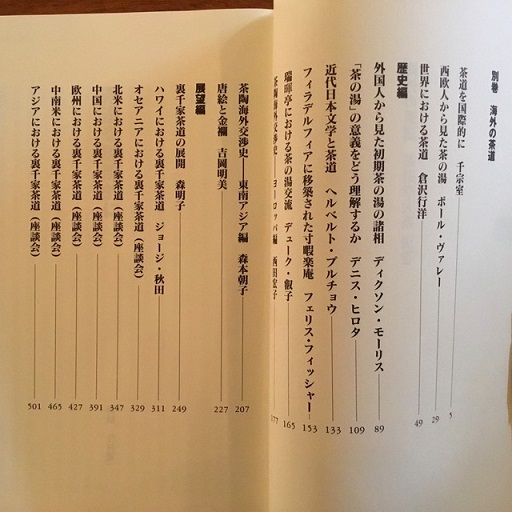 別巻 海外の茶道
茶道を国際的に 千宗室 5
西欧人から見た茶の湯 ポール・ヴァレー 29
世界における茶道 倉沢行洋 49
歴史編
外国人から見た初期茶の湯の諸相 ディクソン・モーリス 89
「茶の湯」の意義をどう理解するか デニス・ヒロタ 109
近代日本文学と茶道 ヘルベルト・プルチョウ 133
フィラデルフィアに移築された寸暇楽庵 フェリス・フィッシャー 153
瑞暉亭における茶の湯交流 デューク・叡子 165
茶陶海外交渉史 ヨーロッパ編 西田宏子 177
茶陶海外交渉史―東南アジア編 森本朝子 207
唐絵と金襴 吉岡明美 227
展望編
裏千家茶道の展開 森明子 249
ハワイにおける裏千家茶道 ジョージ・秋田 311
オセアニアにおける裏千家茶道（座談会） 329
北米における裏千家茶道（座談会） 347
中国における裏千家茶道（座談会） 391
欧州における裏千家茶道（座談会） 427
中南米における裏千家茶道（座談会） 465
アジアにおける裏千家茶道（座談会） 501